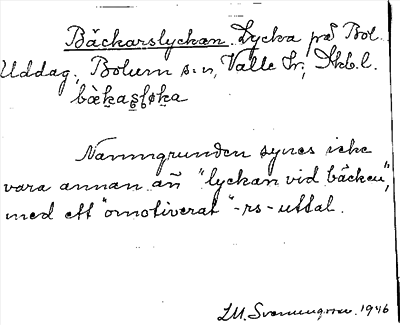 Bäckarslyckan. Lycka på Bol.
Uddag, Bolum s:n, Valle hr, Skb.l.
Namngrunden synes icke
vara annan än "lyckan vid bäcken",
med ett "omotiverat" -rs- uttal.
1946